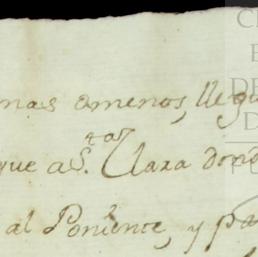 mas omenos, llegu
que a S.ta Clara dond
al Poniente, y pa